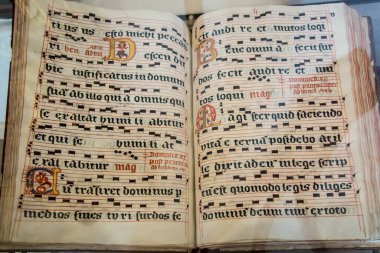 ti us us esto michi peccato
ri
Descen dit
hic iustificatus in domum
sua ab illo quia omnis qui
se exaltat humi li abitur
et qui se humi li at
exal tabitur mag
Cum transiret dominus p
medios fines tyri surdos fe
cit audi re et mutos loqui
Bene omni a fecit sur
dos fecit audi re et mu
tos loqui mag
Magister quid faciendo
vitam eternam possidebo
le dixit ad eum in lege scrip
tum est quomodo legis diliges
dominum deum tuum ex toto